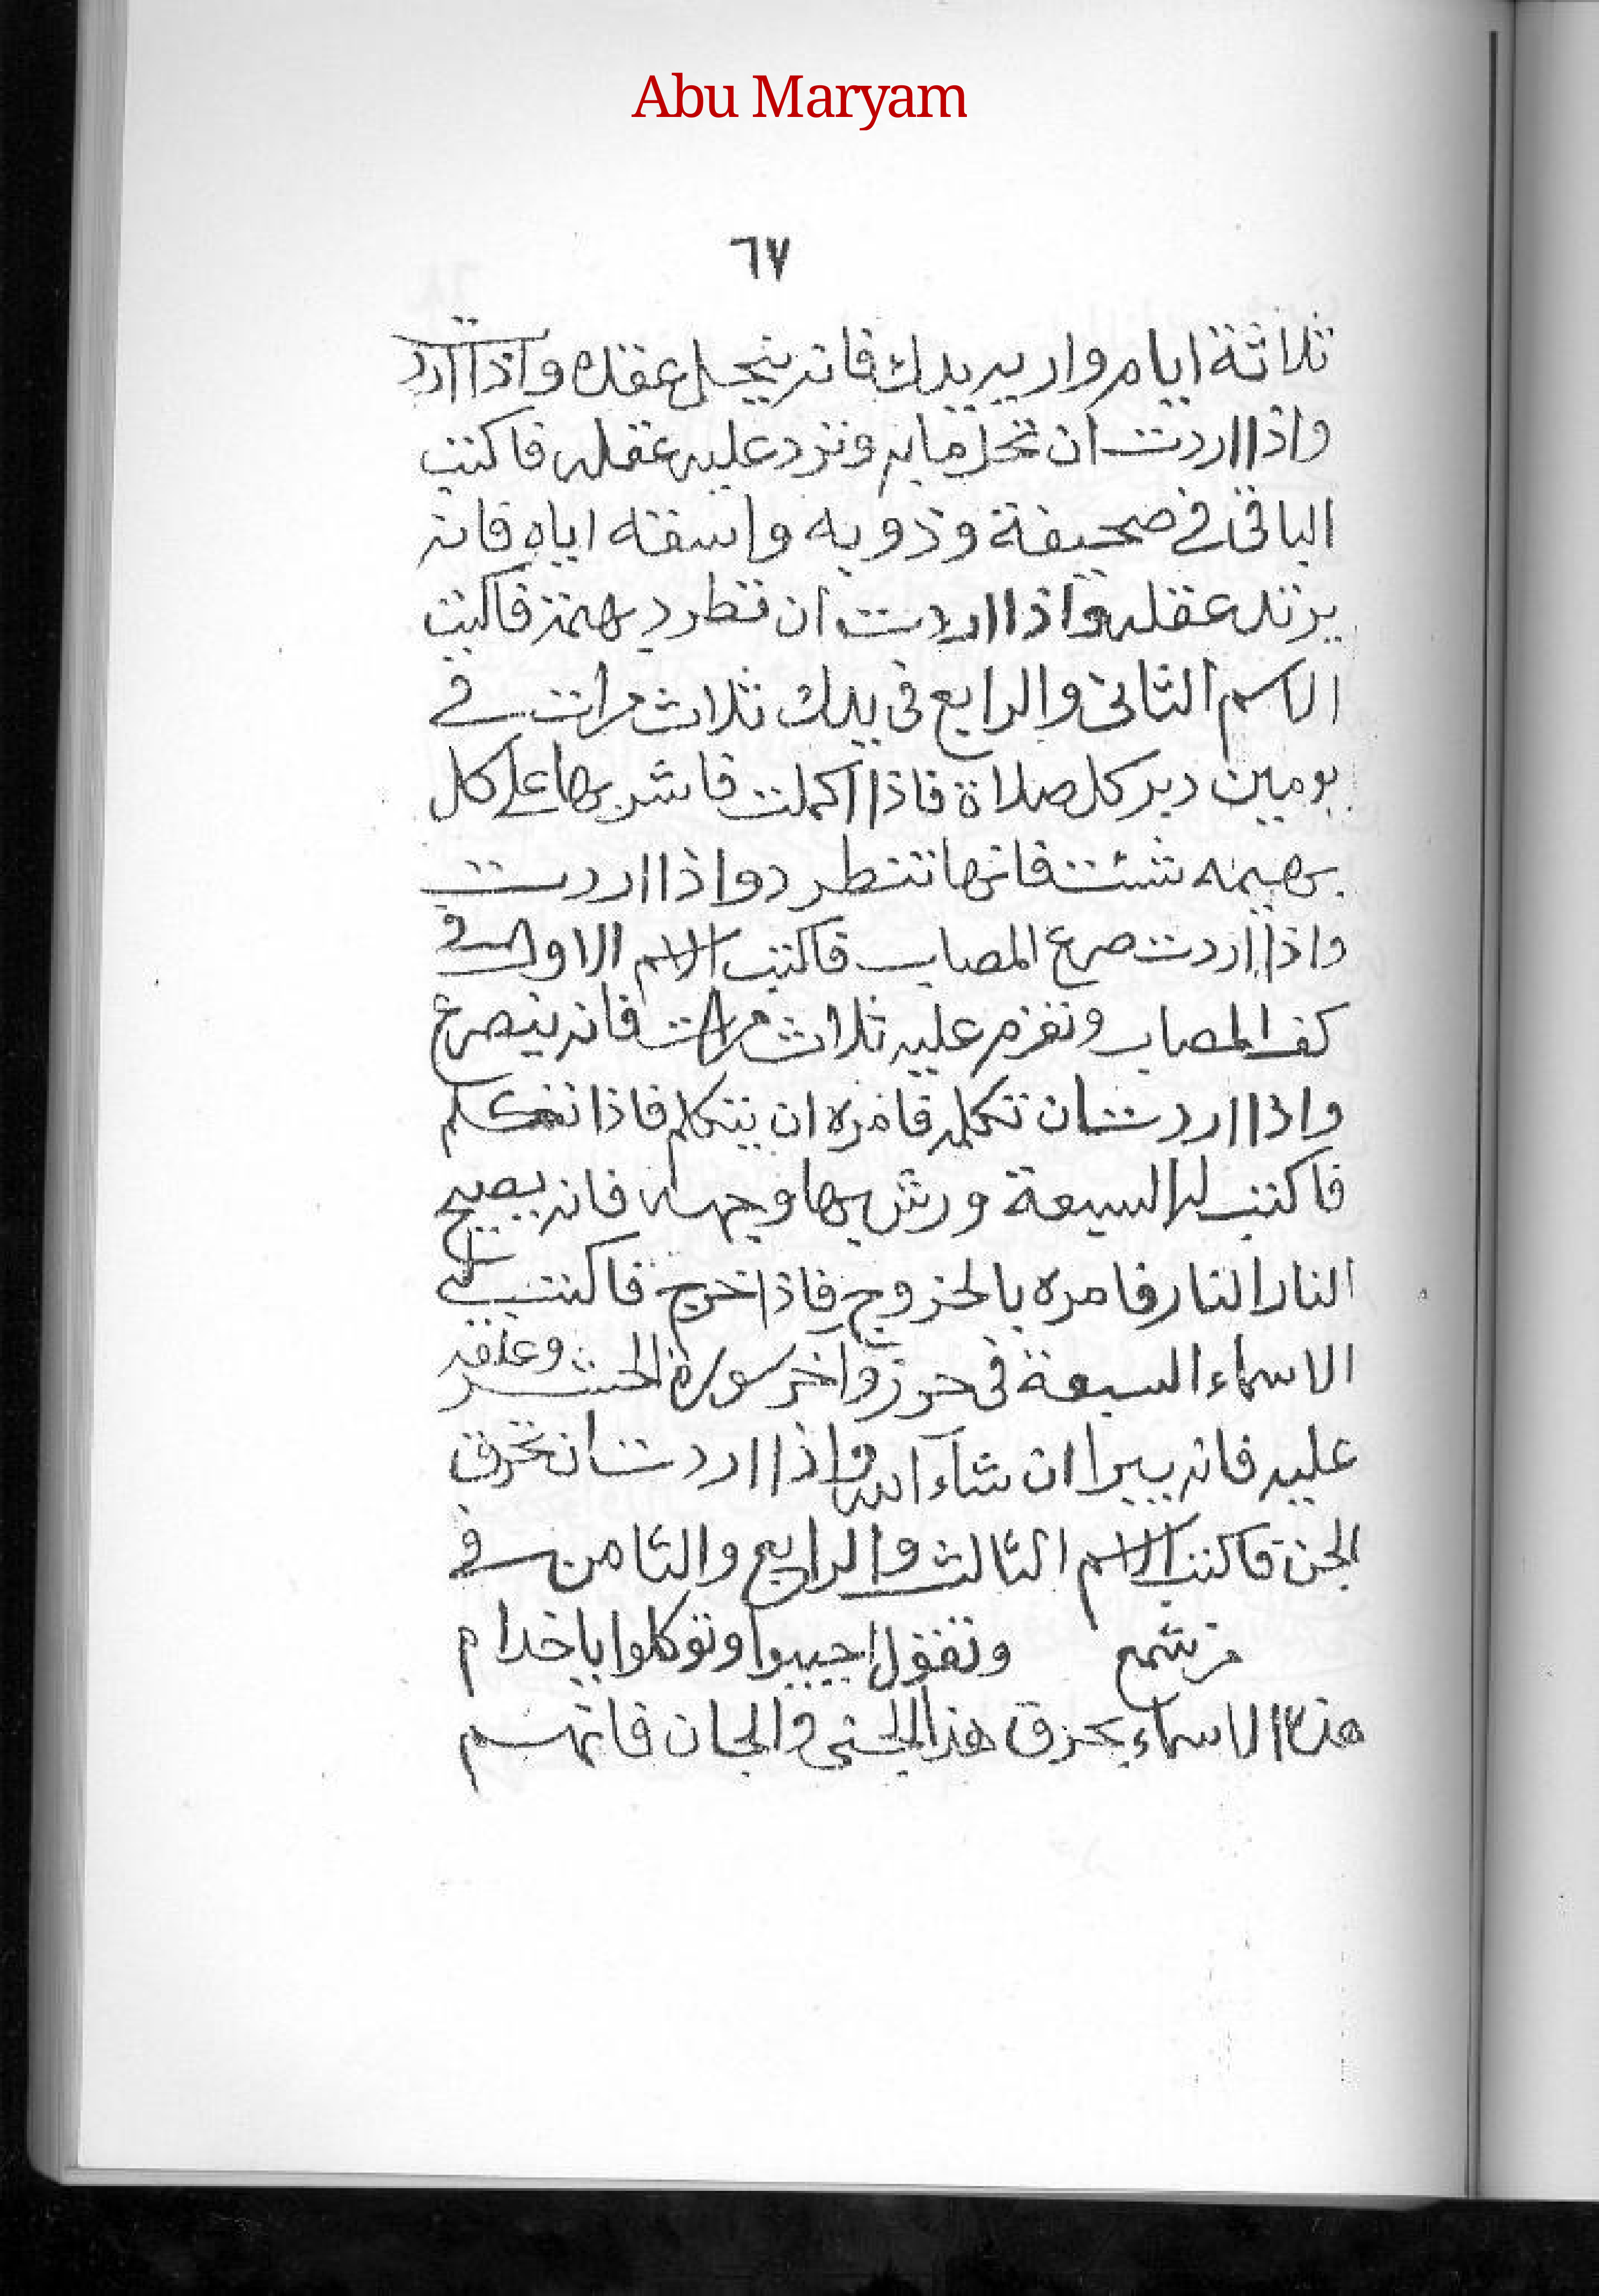 Abu Maryam
٦٧
ثلاثة ايام وادير يدك فانه ينحل عقله واذا اردت
واذا اردت ان تحل مابه وترد عليه عقله فاكتب
الباقى فى صحيفة وذوبه واسقه اياه فانه
يرتد عقله واذا اردت ان تطرد فاكتب
الاسم الثانى والرابع فى يدك ثلاث مرات فى
يومين دبر كل صلاة فاذا اكملت فاشر بها على كل
بهيمه شئت فانها تنطرد واذا اردت
واذا اردت صرع المصاب فاكتب الاسم الاول فى
كف المصاب وتعزم عليه ثلاث مرات فانه ينصرع
واذا اردت ان تكلمه فامره ان يتكلم فاذا تكلم
فاكتب له السبعة ورش بها وجهه فانه يصيح
النار النار فامره بالخروج فاذا خرج فاكتب له
الاسماء السبعة فى حرز واخر سورة الحشر وعلقه
عليه فانه يبرا ان شآء الله واذا اردت ان تحرق
الجن فاكتب الاسم الثالث والرابع والثامن فى
شمع وتقول اجيبوا وتوكلوا ياخدام
هذه الاسماء بحرق هذا الجنى والجان فانهم